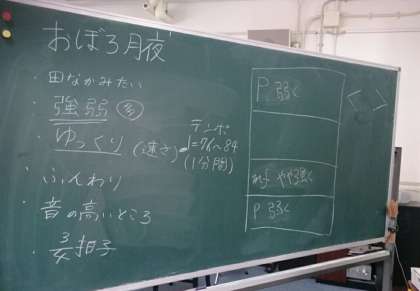 おぼろ月夜
・田なかみたい
・強弱 多
・ゆっくり (速さ)
テンポ
♩=76~84
(1分間)
・ふんわり
・音の高いところ
・3/4拍子
P 弱く
mf やや強く
P 弱く